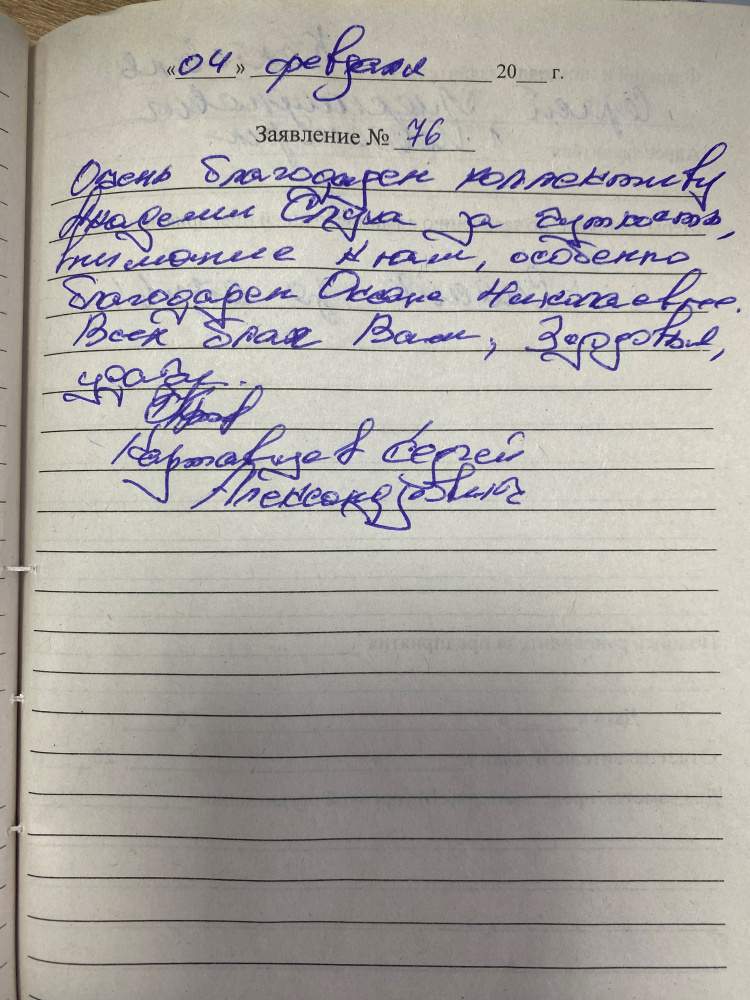 «04» февраля 20___ г.
Заявление № 76
Очень благодарен коллективу
Академии Слуха за чуткость,
внимание к нам, особенно
благодарен Оксане Николаевне.
Всех благ Вам, Здоровья,
удачи.
Сергей
Александрович